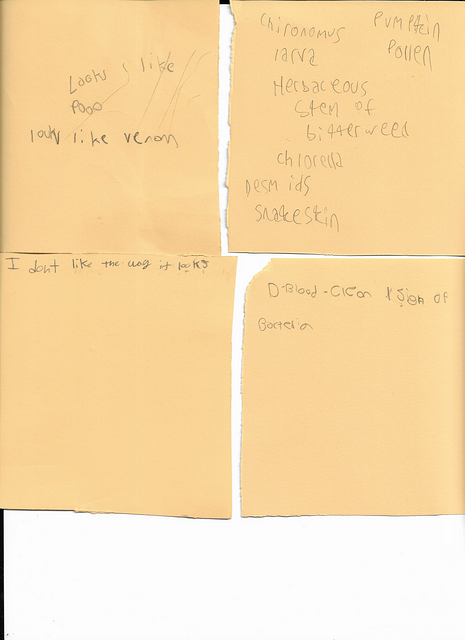 Looks like
Poop
looks like venom
Chironomus
larva
Pumpkin
Pollen
Herbaceous
Stem of
bitterweed
chlorella
Desmids
Snakeskin
I dont like the way it looks
D-Blood - Clean 1 Sign of
Bacteria